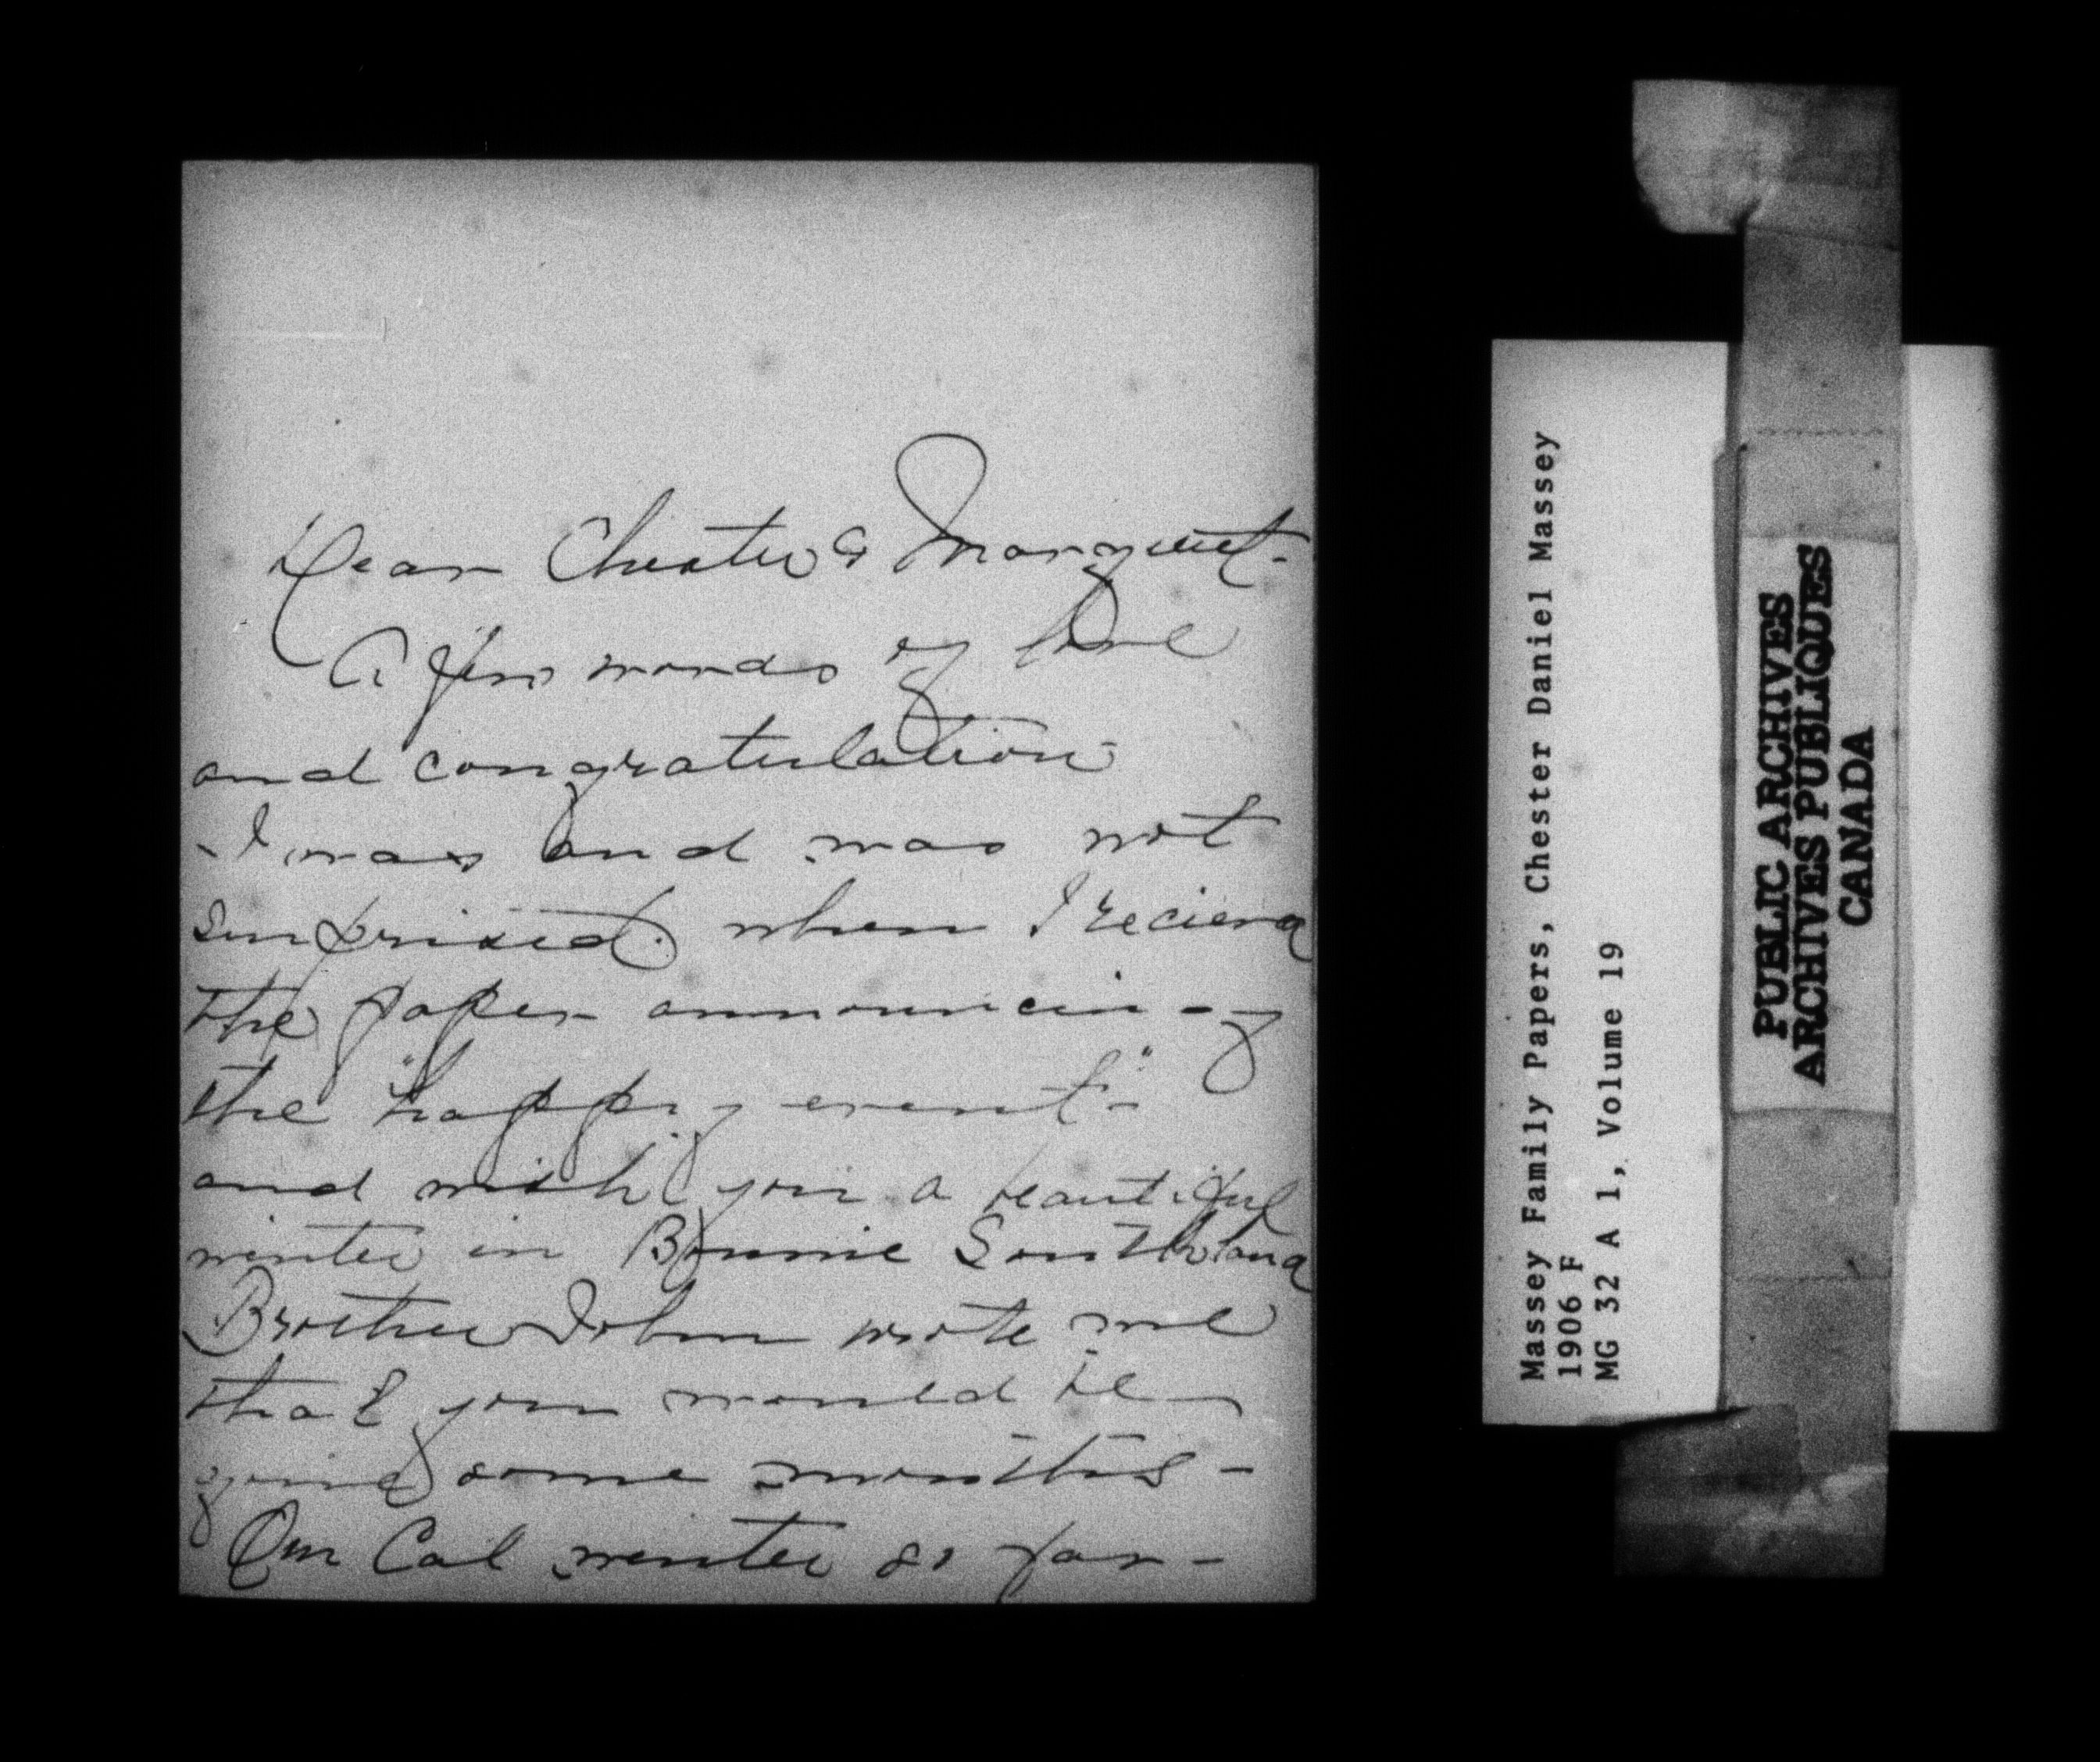 Dear Chester & Marguet-
A few words of love
and congratulation
I was and was not
surprised. when I recieved
the paper announcing
the "happy event"-
and wish you a beautiful
winter in Bonnie Southland
Brother John wrote me
that you would be
gone some months -
Our Cal winter so far -
Massey Family Papers, Chester Daniel Massey
1906 F
MG 32 A 1, Volume 19
PUBLIC ARCHIVES
ARCHIVES PUBLIQUES
CANADA